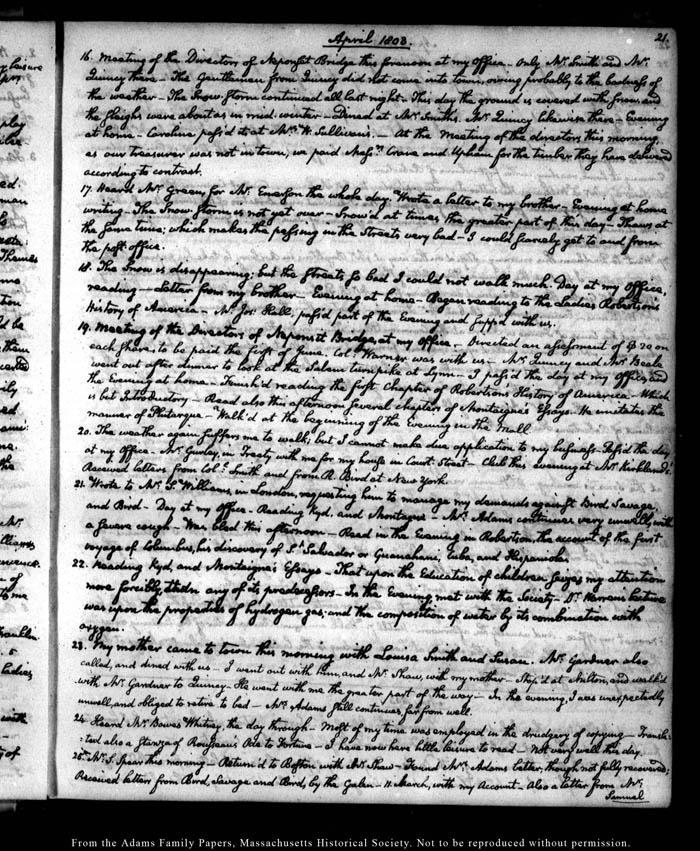 April 1803.
21.
16. Meeting of the Directors of Neponset Bridge this forenoon at my Office – Only Mr. Smith and Mr.
Quincy there – The Gentlemen from Quincy did not come into town, owing probably to the badness of
the weather – The Snow-Storm continued all last night – This day the ground is covered with Snow, and
the sleighs were about as in mid-winter – Dined at Mr. Smith's. Mr. Quincy likewise there – Evening
at home – Caroline pass'd it at Mrs. W. Sullivan's. – At the Meeting of the directors, this morning
as our treasurer was not in town, we paid Mess.rs Crane and Upham for the timber they have delivered
according to contract.
17. Heard Mr. Green, for Mr. Emerson the whole day. Wrote a letter to my brother – Evening at home
writing – The Snow-Storm is not yet over – Snow'd at times the greater part of this day – Thaws at
the same time; which makes the passing in the Streets very bad – I could scarcely get to and from
the post-office.
18. The Snow is disappearing; but the Streets so bad I could not walk much. Day at my Office,
reading – Letter from my brother – Evening at home – Began reading to the Ladies Robertson's
History of America – Mr. Jos: Hall, pass'd part of the Evening and supp'd with us.
19. Meeting of the Directors of Neponset Bridge at my Office. – Directed an assessment of $20 on
each share, to be paid the first of June. Col. Warner was with us – Mr. Quincy and Mr. Beale
went out after dinner to look at the Salem turnpike at Lynn – I pass'd the day at my Office, and
the Evening at home – Finish'd reading the first Chapter of Robertson's History of America – Which
is but Introductory – Read also this afternoon several chapters of Montaigne's Essays – He imitates the
manner of Plutarque – Walk'd at the beginning of the Evening in the Mall.
20. The weather again suffers me to walk; but I cannot make due application to my business – Pass'd the day
at my Office – Mr. Gurley, in Treaty with me for my house in Court-Street – Club this evening at Mr. Kirkland's.
Received letters from Col: Smith and from R. Bird at New York.
21. Wrote to Mr. S. Williams, in London, requesting him to manage my demands against Bird, Savage
and Bird – Day at my Office – Reading Kyd, and Montaigne – Mrs. Adams continues very unwell, with
a severe cough – Was bled this afternoon – Read in the Evening in Robertson, the account of the first
voyage of Columbus, his discovery of St. Salvador or Guanahani, Cuba, and Hispaniola.
22. Reading Kyd, and Montaigne's Essays – That upon the Education of children seizes my attention
more forcibly than any of its predecessors – In the Evening, met with the Society – Dr. Warren's lecture
was upon the properties of hydrogen gas; and the composition of water by its combination with
oxygen.
23. My mother came to town this morning with Louisa Smith and Susan. Mr. Gardner also
called, and dined with us – I went out with him, and Mr. Shaw, with my mother – Stop'd at Milton, and walk'd
with Mr. Gardner to Quincy – He went with me the greater part of the way – In the evening, I was unexpectedly
unwell, and obliged to retire to bed – Mrs. Adams still continues far from well.
24. Heard Mr. Bowes Whitney, the day through – Most of my time was employed in the drudgery of copying – Transla:
:ted also a stanza of Rousseau's Ode to Fortune – I have now here little leisure to read – Not very well this day.
25. Mr. S. Spear this morning – Return'd to Boston with Mr. Shaw – Found Mrs. Adams better, though not fully recovered;
Received letters from Bird, Savage and Bird, by the Galen – 11. March, with my Account – Also a letter from Mr.
Samuel
From the Adams Family Papers, Massachusetts Historical Society. Not to be reproduced without permission.